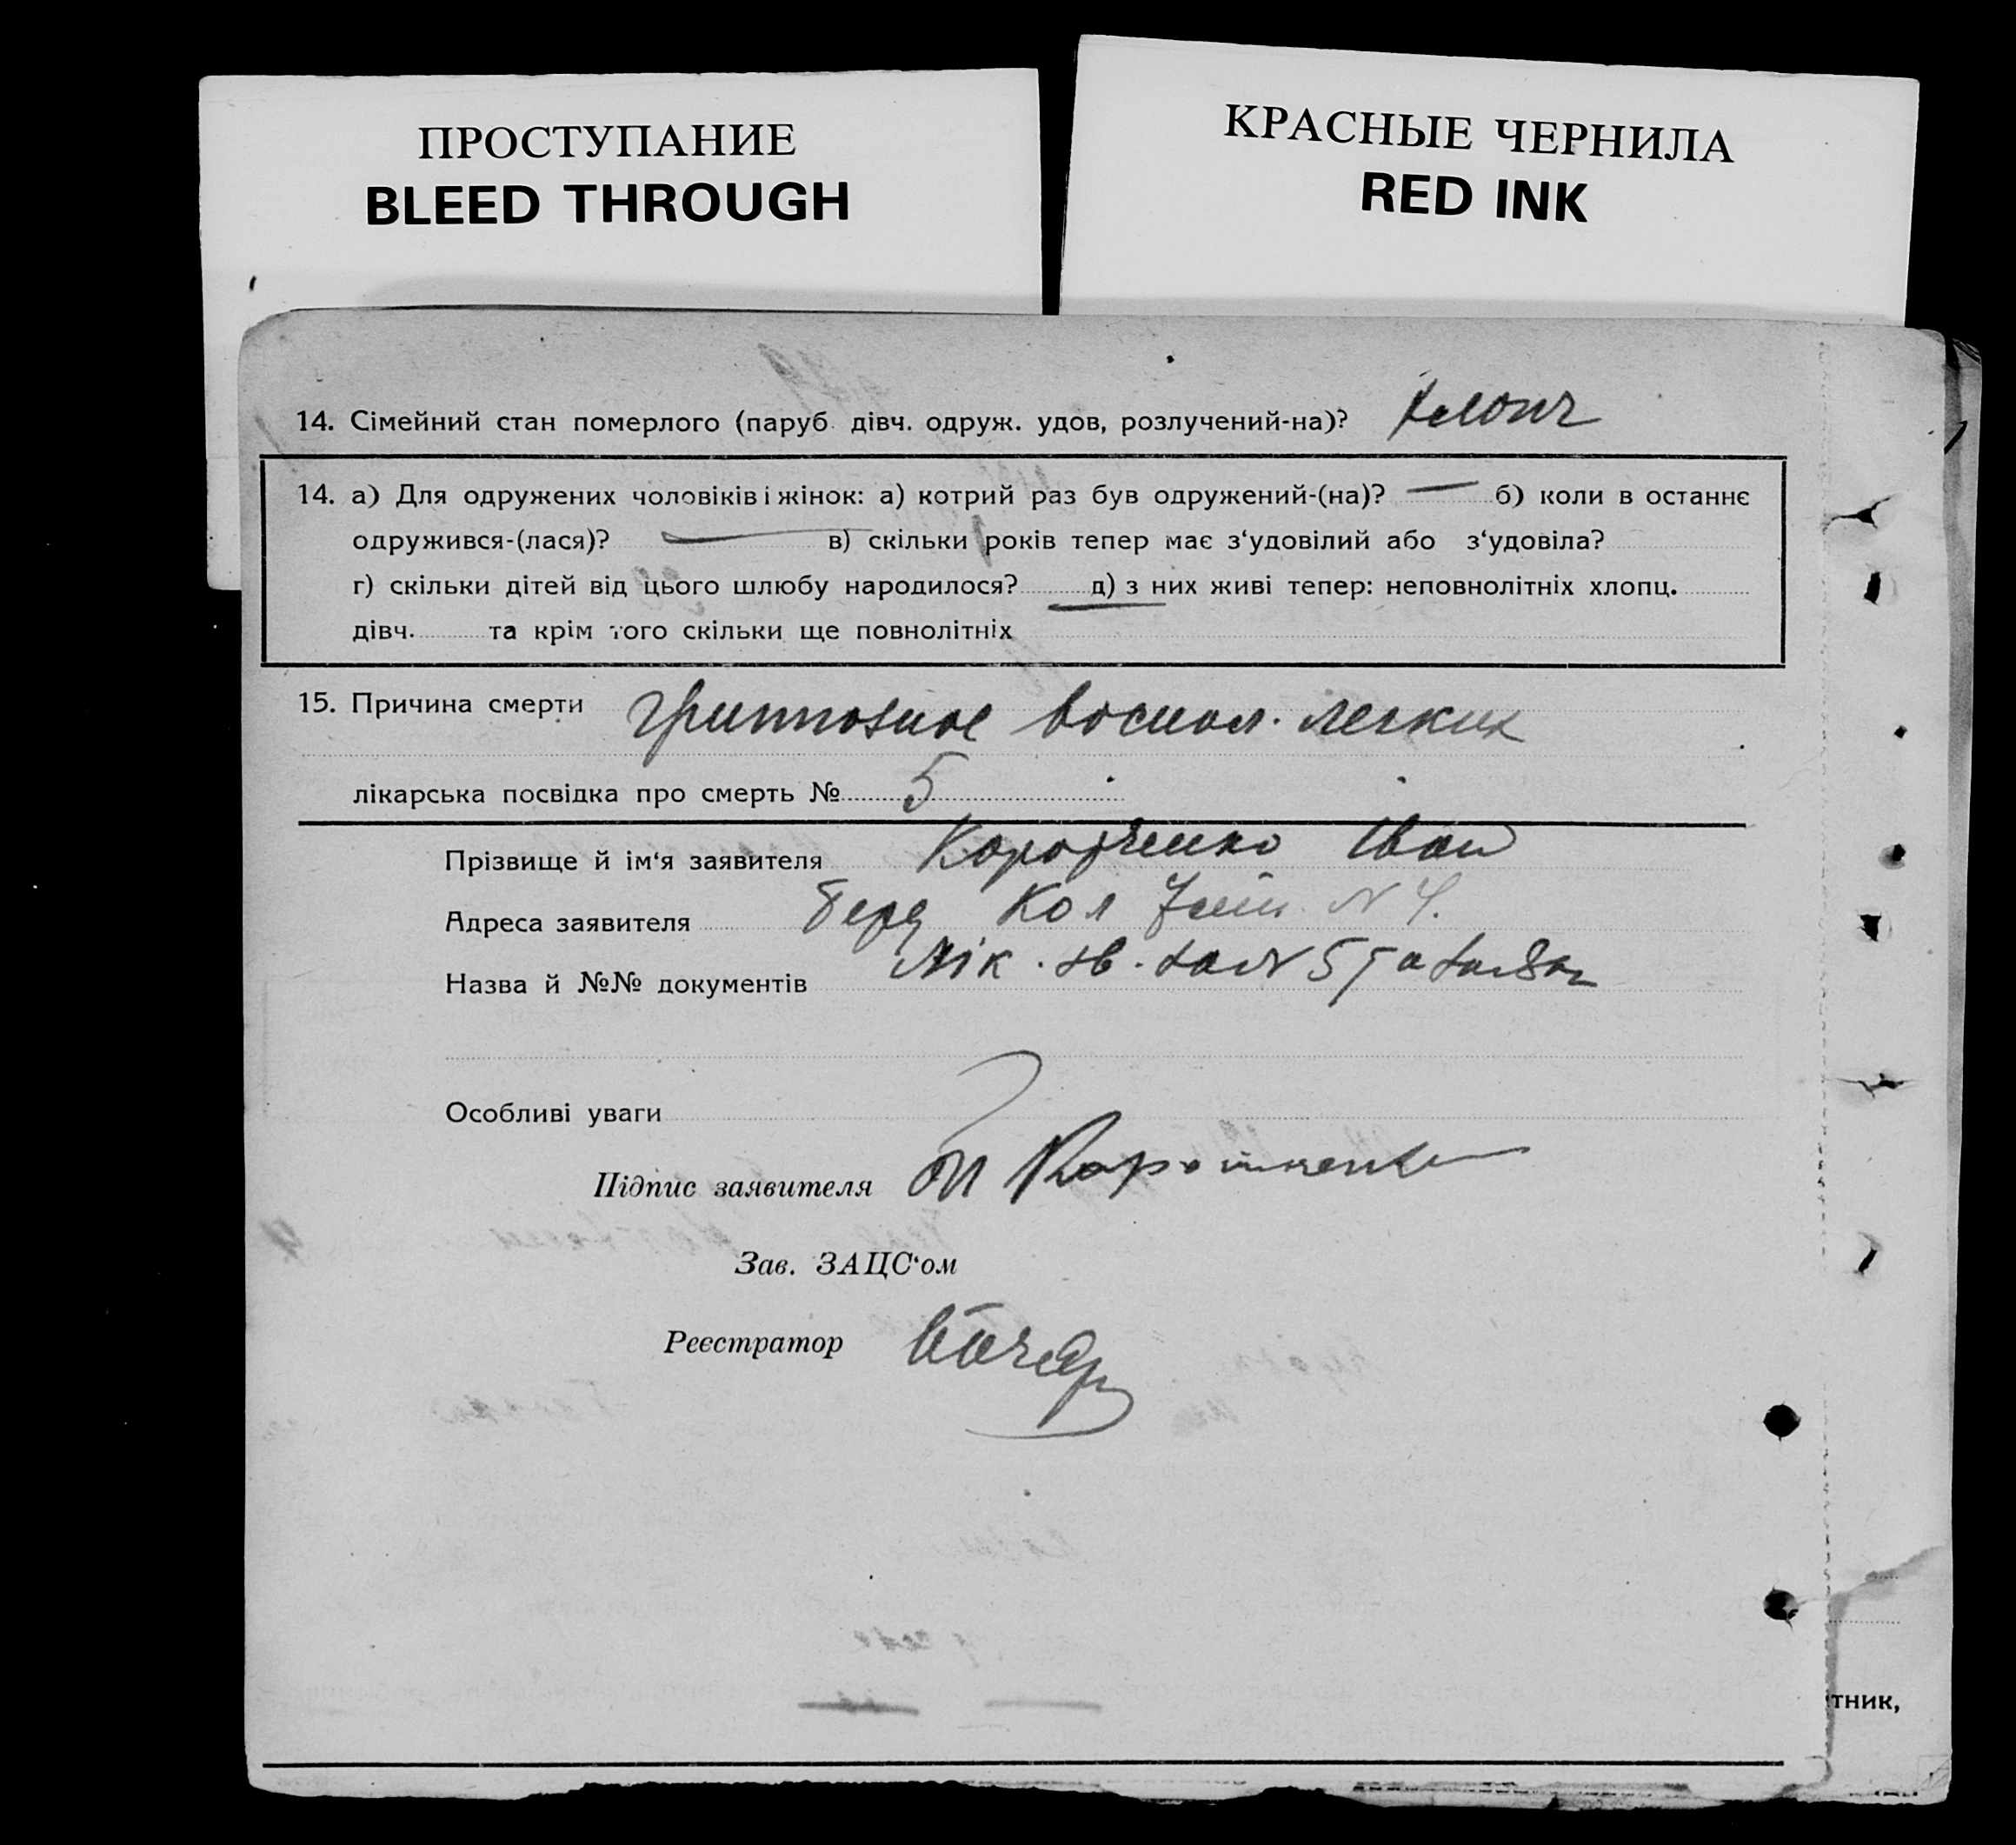 ПРОСТУПАНИЕ
BLEED THROUGH
КРАСНЫЕ ЧЕРНИЛА
RED INK
14. Сімейний стан померлого (паруб. дівч. одруж. удов, розлучений-на)? хлопч
14. а) Для одружених чоловіків і жінок: а) котрий раз був одружений-(на)? — б) коли в останнє
одружився-(лася)? — в) скільки років тепер має з‘удовілий або з‘удовіла?
г) скільки дітей від цього шлюбу народилося? — д) з них живі тепер: неповнолітніх хлопц.
дівч. та крім того скільки ще повнолітніх
15. Причина смерти гриппозное воспал. легких
лікарська посвідка про смерть № 5
Прізвище й ім‘я заявителя Коротченко Іван
Адреса заявителя Кол N 4.
Назва й №№ документів Лік. N 5
Особливі уваги
Підпис заявителя Коротченко
Зав. ЗАЦС‘ом
Реєстратор
тник,